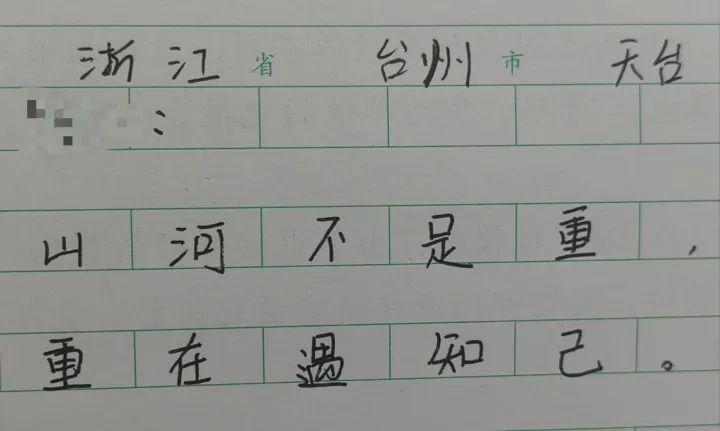 浙江省 台州市 天台
：
山河不是重，
重在遇知己。